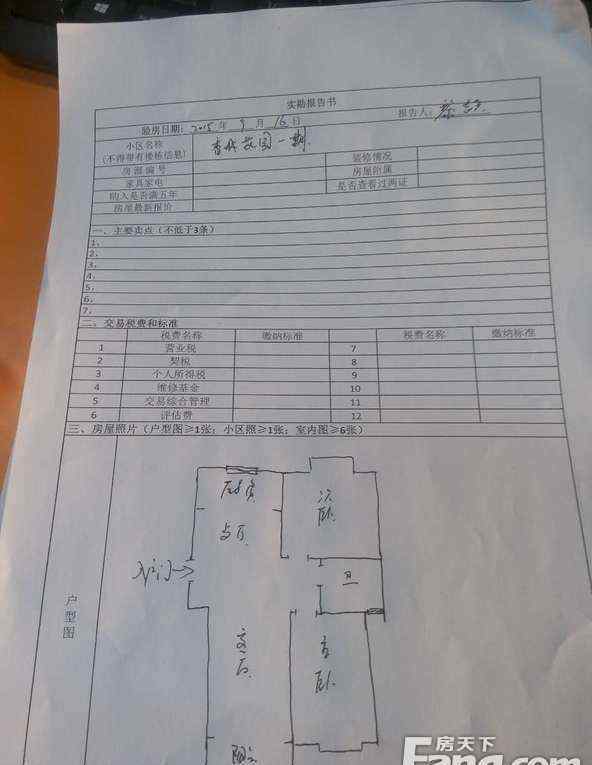 实勘报告书
验房日期：2015年9月16日 报告人：蔡
小区名称 花园一期
(不得带有楼栋信息) 装修情况
房源编号 房屋附属
家具家电 是否查看过两证
购入是否满五年
房屋最新报价
一、主要卖点（不低于3条）
1、
2、
3、
4、
5、
6、
7、
二、交易税费和标准
税费名称 缴纳标准 税费名称 缴纳标准
1 营业税 7
2 契税 8
3 个人所得税 9
4 维修基金 10
5 交易综合管理 11
6 评估费 12
三、房屋照片（户型图≥1张；小区照≥1张；室内图≥6张）
户型图
厨房
次卧
入户门
卫
客厅
主卧
阳台
房天下
Fang.com